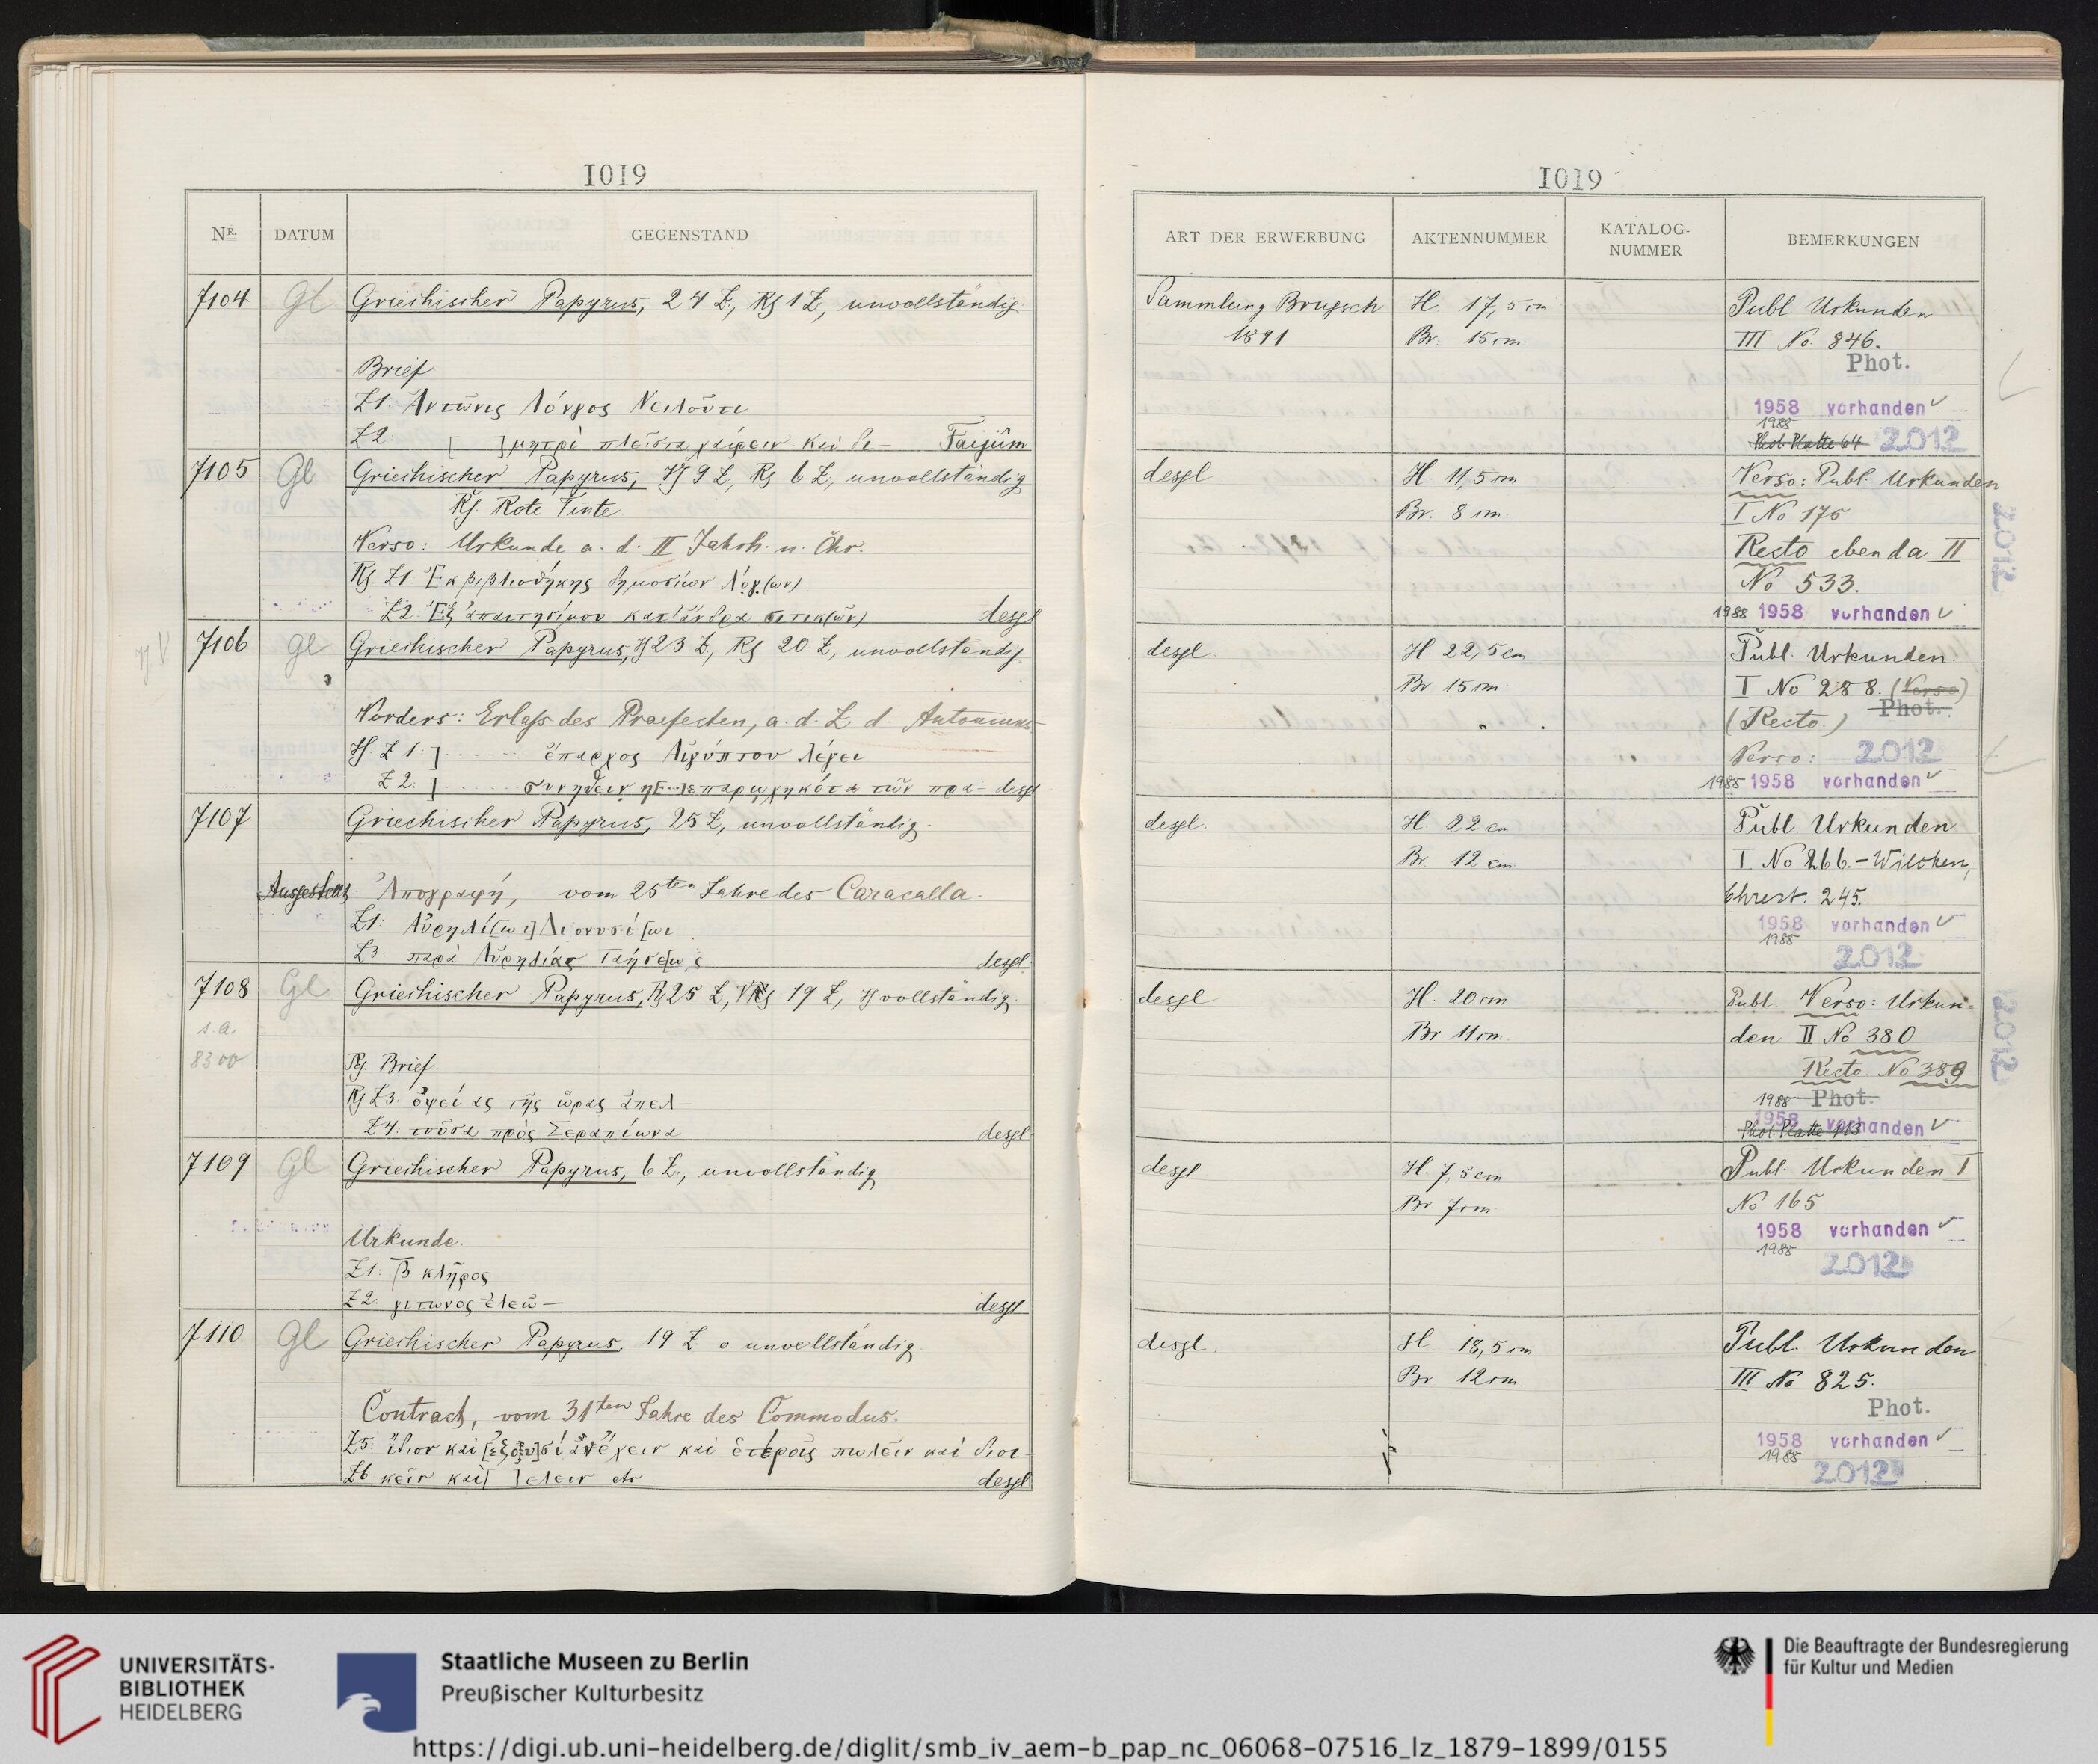 1019
NR. DATUM GEGENSTAND
7104 Gl Griechischer Papyrus, 24 Z, Rs 1 Z, unvollständig
Brief
Z1. Ἀντῶνις Λόνγος Νειλοῦτι
Z2. [ ]μητρὶ πλεῖστα χαίρειν. Καὶ δι- Faijûm
7105 Gl Griechischer Papyrus, Vs 9 Z, Rs 6 Z, unvollständig
Rs. Rote Tinte
Verso: Urkunde a. d. II Jahrh. n. Chr.
Rs Z1 Ἐκ βιβλιοθήκης δημοσίων λόγ(ων)
Z2. Ἐξ ἀπαιτησίμου κατ' ἄνδρα σιτικ(ῶν) desgl
7106 Gl Griechischer Papyrus, Vs 23 Z, Rs 20 Z, unvollständig
Vorders: Erlaß des Praefecten, a. d. Z d. Antoninus
Vs. Z 1. ] ἔπαρχος Αἰγύπτου λέγει
Z 2. ] desgl
7107 Griechischer Papyrus, 25 Z, unvollständig.
Ausgestellt Ἀπογραφή, vom 25ten Jahre des Caracalla.
Z1: Αὐρηλί[ωι] Διονυσί[ωι
Z3: παρὰ Αὐρηλίας Ταήσε[ως desgl.
7108 Gl Griechischer Papyrus, Rs 25 Z, Vs 19 Z, vollständig.
s. a.
8300 Rs. Brief
Rs Z3. ὀψείας τῆς ὥρας ἀπελ-
Z4. τοῦσα πρὸς Σεραπίωνα desgl.
7109 Gl Griechischer Papyrus, 6 Z., unvollständig
Urkunde.
Z1: β κλῆρος
Z2. γιτωνος ἐλεω- desgl
7110 Gl Griechischer Papyrus, 19 Z o unvollständig.
Contract, vom 31ten Jahre des Commodus.
Z5. καὶ πωλεῖν καὶ διοι-
Z6 κεῖν καὶ[ ]ελειν etc desgl
1019
ART DER ERWERBUNG AKTENNUMMER KATALOG-NUMMER BEMERKUNGEN
Sammlung Brugsch H. 17,5 cm Publ Urkunden
1891 Br. 15 cm III No. 846.
Phot.
1958 vorhanden
1988
Phot. Platte 64 2012
desgl H. 11,5 cm Verso: Publ. Urkunden
Br. 8 cm I No 175
Recto ebenda II
No 533.
1988 1958 vorhanden
2012
desgl. H. 22,5 cm Publ. Urkunden.
Br. 15 cm I No 288. (Verso)
(Recto.) Phot.
Verso: 2012
1988 1958 vorhanden
desgl. H. 22 cm Publ. Urkunden
Br. 12 cm I No 266. - Wilcken,
Chrest. 245.
1958 vorhanden
1988
2012
desgl H. 20 cm Publ. Verso: Urkun-
Br 11 cm den II No 380
Recto No 389
1988 Phot.
1958 vorhanden
Phot. Platte
2012
desgl H. 7,5 cm Publ. Urkunden I
Br 7 cm No 165
1958 vorhanden
1988
2012
desgl. H 18,5 cm Publ. Urkunden
Br 12 cm III No 825.
Phot.
1958 vorhanden
1988
2012
UNIVERSITÄTS-
BIBLIOTHEK
HEIDELBERG
Staatliche Museen zu Berlin
Preußischer Kulturbesitz
Die Beauftragte der Bundesregierung
für Kultur und Medien
https://digi.ub.uni-heidelberg.de/diglit/smb_iv_aem-b_pap_nc_06068-07516_lz_1879-1899/0155